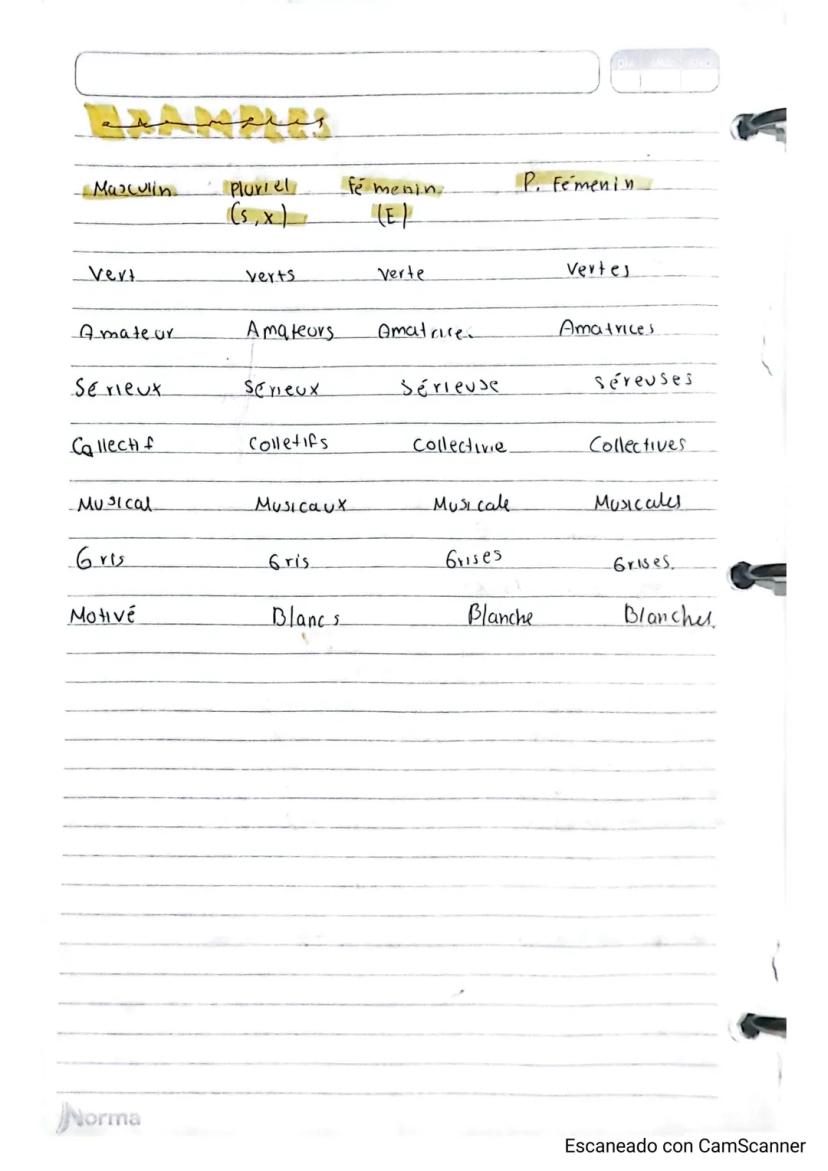 DIA MES AÑO
EXAMPLES
examples
Masculin Pluriel Fémenin P. Fémenin
(S, X) (E)
Vert verts verte Vertes
Amateur Amateurs Amatrice. Amatrices
Sérieux Sérieux Sérieuse Séreuses
Collectif Colletifs Collectivie Collectives
Musical Musicaux Musicale Musicales
Gris Gris Grises Grises.
Motivé Blancs Blanche Blanches.
Norma
Escaneado con CamScanner